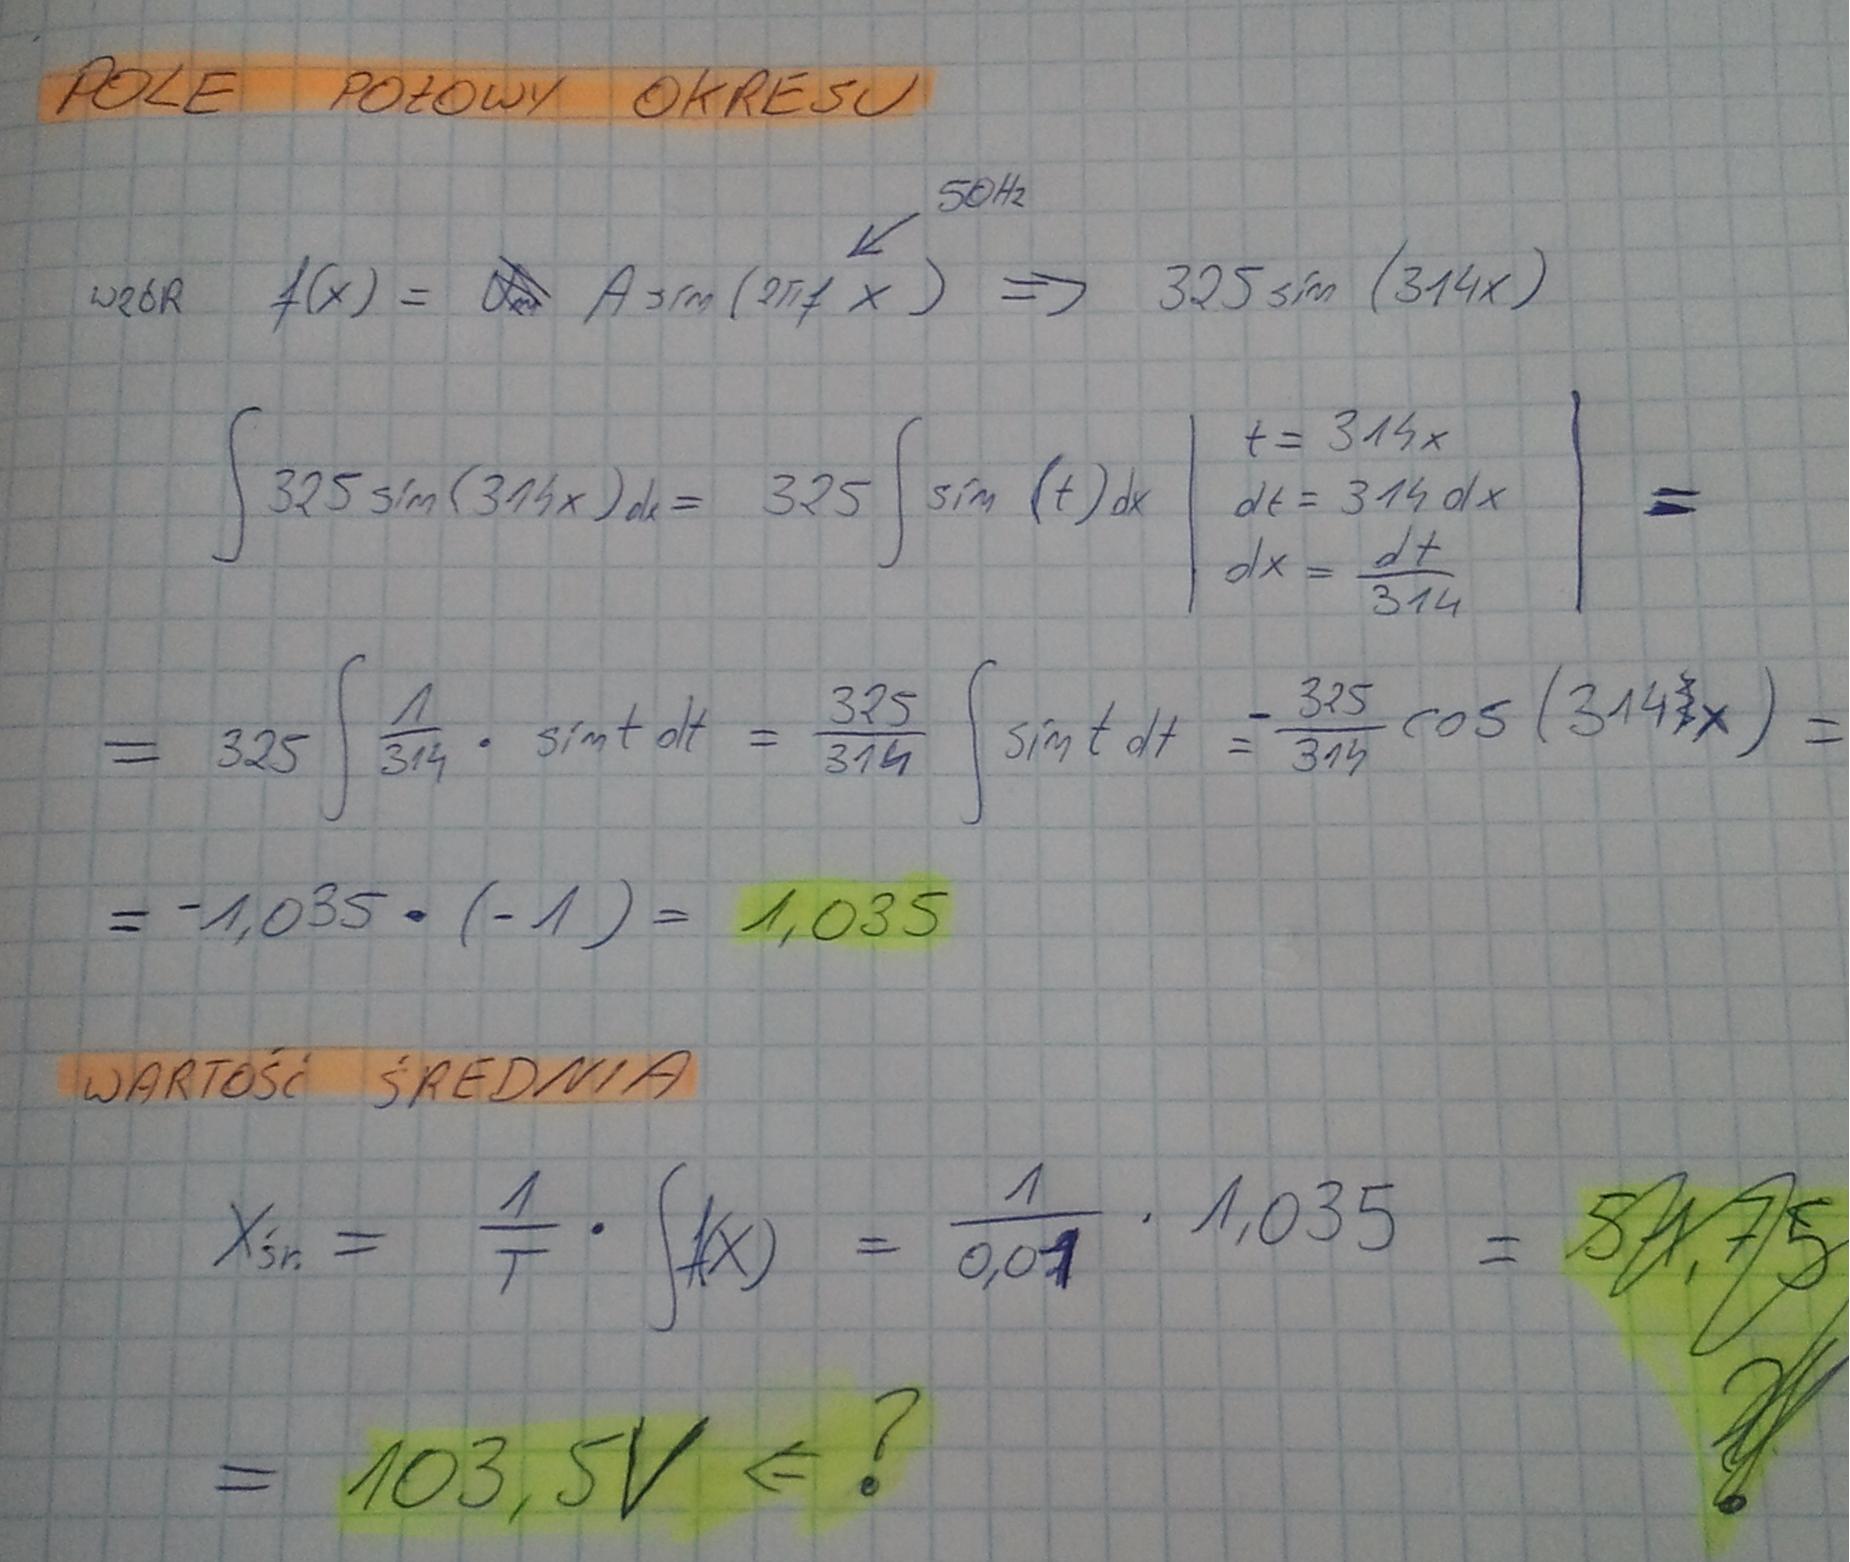 POLE POŁOWY OKRESU
50Hz
WZÓR f(x) = A sin(2πf x) => 325 sin (314x)
∫ 325 sin(314x)dx = 325 ∫ sin (t)dx | t = 314x
dt = 314 dx
dx = dt/314 | =
= 325 ∫ 1/314 · sin t dt = 325/314 ∫ sin t dt = -325/314 cos (314x) =
= -1,035 · (-1) = 1,035
WARTOŚĆ ŚREDNIA
Xśr. = 1/T · ∫f(x) = 1/0,01 · 1,035 =
= 103,5V ← ?